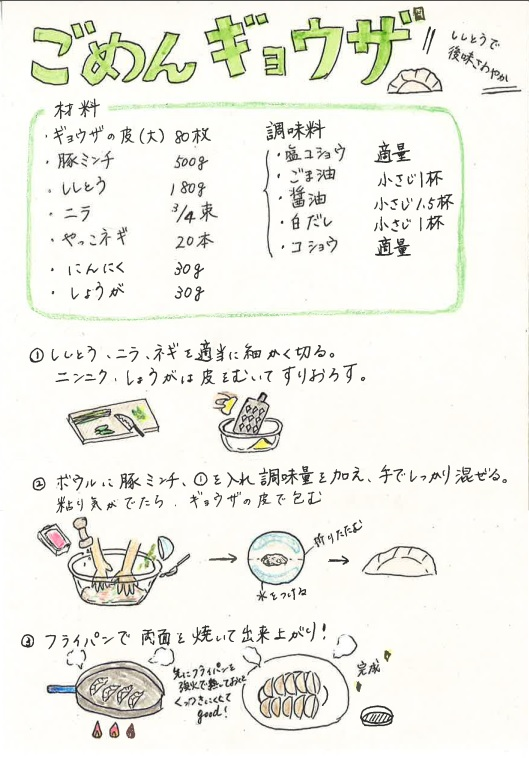 ごめんギョウザ
ししとうで
後味さわやか
材料
・ギョウザの皮(大) 80枚
・豚ミンチ 500g
・ししとう 180g
・ニラ 3/4束
・やっこネギ 20本
・にんにく 30g
・しょうが 30g
調味料
・塩コショウ 適量
・ごま油 小さじ1杯
・醤油 小さじ1.5杯
・白だし 小さじ1杯
・コショウ 適量
①ししとう、ニラ、ネギを適当に細かく切る。
ニンニク、しょうがは皮をむいてすりおろす。
②ボウルに豚ミンチ、①を入れ調味量を加え、手でしっかり混ぜる。
粘り気がでたら、ギョウザの皮で包む
折りたたむ
水をつける
③フライパンで両面を焼いて出来上がり!
先にフライパンを
強火で熱しておくと
くっつきにくくて
good!
完成